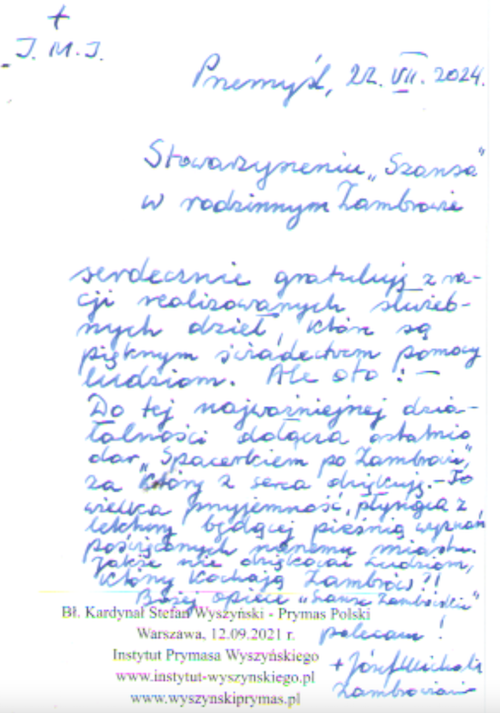 +
J. M. J.
Przemyśl, 22. VII. 2024.
Stowarzyszeniu „Szansa"
w rodzinnym Zambrowie
serdecznie gratuluję z ra-
cji realizowanych służeb-
nych dzieł, które są
pięknym świadectwem pomocy
ludziom. Ale oto! —
Do tej najważniejszej dzia-
łalności dołącza ostatnio
dar „Spacerkiem po Zambrowie",
za który z serca dziękuję. – To
wielka przyjemność, płynąca z
lektury będącej pieśnią wyznań
poświęconych naszemu miastu.
Jakże nie dziękować Ludziom,
którzy kochają Zambrów?!
Bożej opiece „Szansę Zambrowską"
polecam!
Bł. Kardynał Stefan Wyszyński - Prymas Polski
Warszawa, 12.09.2021 r.
Instytut Prymasa Wyszyńskiego
www.instytut-wyszynskiego.pl
www.wyszynskiprymas.pl
+ Józef Michalik